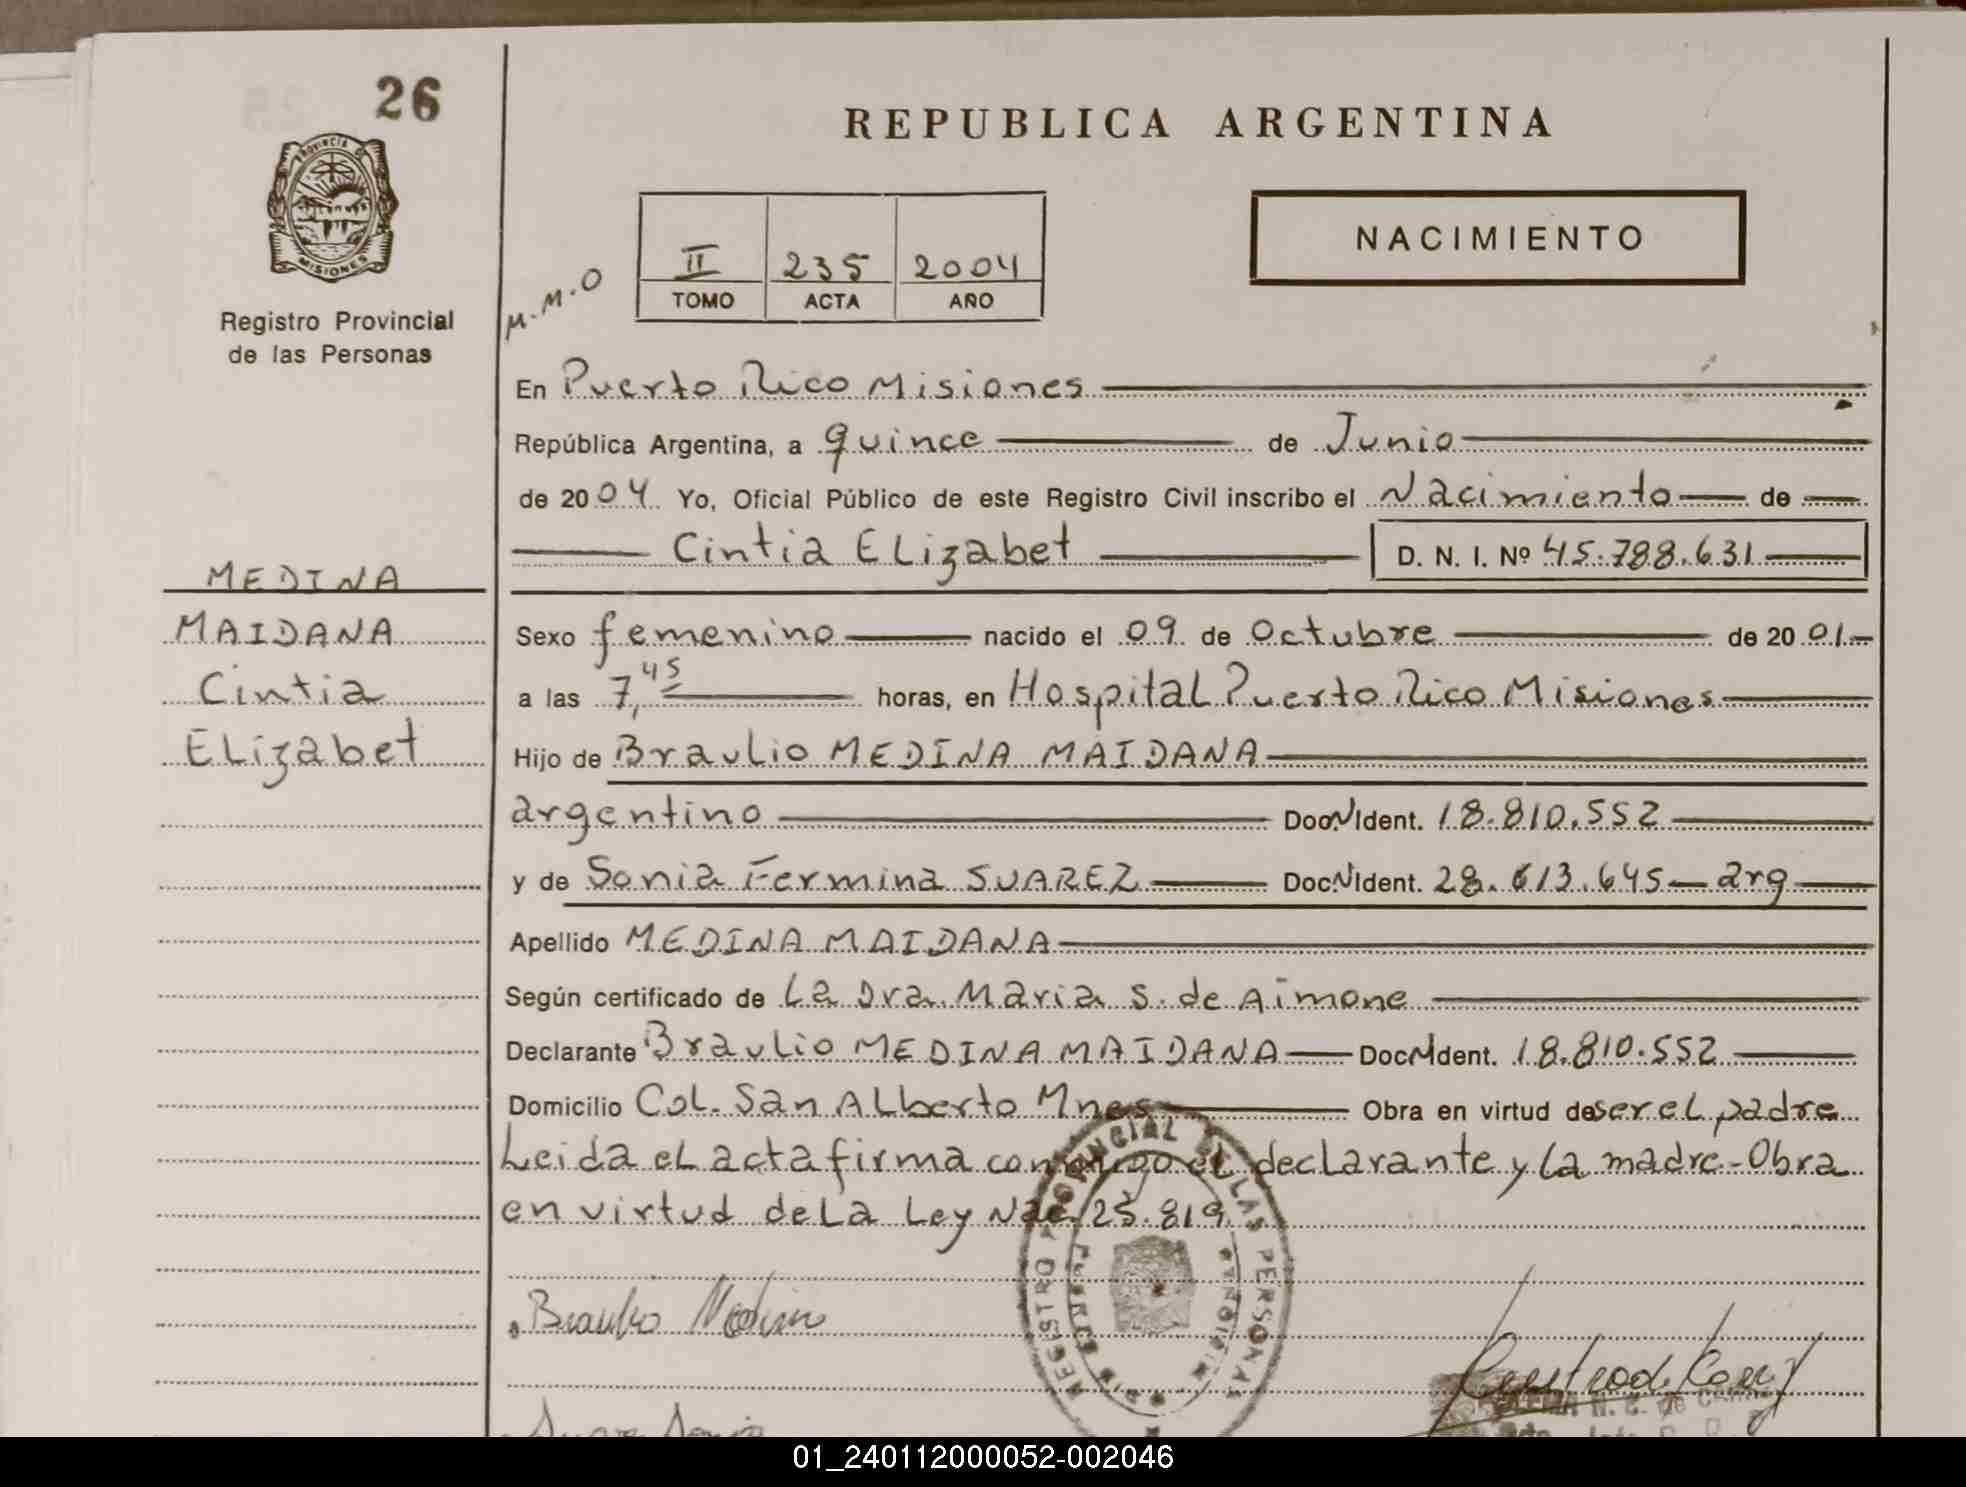 26
REPUBLICA ARGENTINA
PROVINCIA DE
MISIONES
Registro Provincial
de las Personas
M.M.O
II 235 2004
TOMO ACTA AÑO
NACIMIENTO
En Puerto Rico Misiones
República Argentina, a quince de Junio
de 2004 Yo, Oficial Público de este Registro Civil inscribo el Nacimiento de
Cintia ELizabet D. N. I. Nº 45.788.631
MEDINA
MAIDANA
Cintia
ELizabet
Sexo femenino nacido el 09 de Octubre de 2001
a las 7,45 horas, en HospitaL Puerto Rico Misiones
Hijo de BrauLio MEDINA MAIDANA
argentino Doc. Ident. 18.810.552
y de Sonia Fermina SUAREZ Doc. Ident. 28.613.645 arg
Apellido MEDINA MAIDANA
Según certificado de La Dra. Maria S. de Aimone
Declarante BrauLio MEDINA MAIDANA Doc. Ident. 18.810.552
Domicilio CoL. San ALberto Mnes Obra en virtud de ser eL padre
Leida eL acta firma conmigo eL declarante y La madre-Obra
en virtud de La Ley Nac. 25.819
Braulio Medina
REGISTRO PROVINCIAL DE LAS PERSONAS
01_240112000052-002046